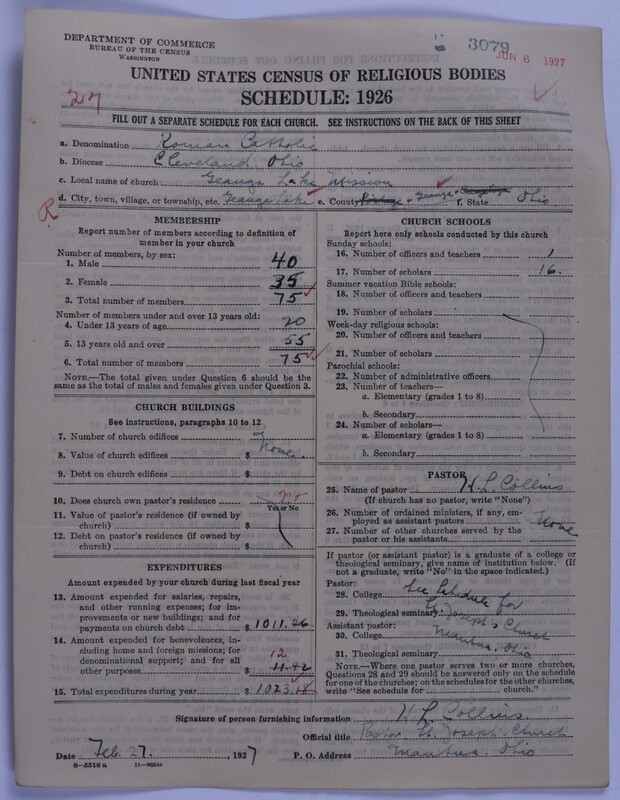 DEPARTMENT OF COMMERCE
BUREAU OF THE CENSUS
WASHINGTON
3079
JUN 6 1927
UNITED STATES CENSUS OF RELIGIOUS BODIES
SCHEDULE: 1926
27
FILL OUT A SEPARATE SCHEDULE FOR EACH CHURCH. SEE INSTRUCTIONS ON THE BACK OF THIS SHEET
a. Denomination Roman Catholic
b. Diocese Cleveland, Ohio
c. Local name of church Geauga Lake Mission
d. City, town, village, or township, etc. Geauga Lake e. County Geauga f. State Ohio
R
MEMBERSHIP
Report number of members according to definition of member in your church
Number of members, by sex:
1. Male 40
2. Female 35
3. Total number of members 75
Number of members under and over 13 years old:
4. Under 13 years of age 20
5. 13 years old and over 55
6. Total number of members 75
NOTE.—The total given under Question 6 should be the
same as the total of males and females given under Question 3.
CHURCH BUILDINGS
See instructions, paragraphs 10 to 12
7. Number of church edifices
8. Value of church edifices $ None
9. Debt on church edifices $
10. Does church own pastor's residence no
Yes or No
11. Value of pastor's residence (if owned by
church) $
12. Debt on pastor's residence (if owned by
church) $
EXPENDITURES
Amount expended by your church during last fiscal year
13. Amount expended for salaries, repairs,
and other running expenses; for im-
provements or new buildings; and for
payments on church debt $ 1011.26
14. Amount expended for benevolences, in-
cluding home and foreign missions; for
denominational support; and for all
other purposes $ 11.92
12
15. Total expenditures during year $ 1023.18
CHURCH SCHOOLS
Report here only schools conducted by this church
Sunday schools:
16. Number of officers and teachers 1
17. Number of scholars 16.
Summer vacation Bible schools:
18. Number of officers and teachers
19. Number of scholars
Week-day religious schools:
20. Number of officers and teachers
21. Number of scholars
Parochial schools:
22. Number of administrative officers
23. Number of teachers—
a. Elementary (grades 1 to 8)
b. Secondary
24. Number of scholars—
a. Elementary (grades 1 to 8)
b. Secondary
PASTOR
25. Name of pastor H L Collins
(If church has no pastor, write "None")
26. Number of ordained ministers, if any, em-
ployed as assistant pastors None
27. Number of other churches served by the
pastor or his assistants
If pastor (or assistant pastor) is a graduate of a college or
theological seminary, give name of institution below. (If
not a graduate, write "No" in the space indicated.)
Pastor:
28. College See Schedule for
29. Theological seminary St. Joseph's Church
Assistant pastor:
30. College Mantua, Ohio
31. Theological seminary
NOTE.—Where one pastor serves two or more churches,
Questions 28 and 29 should be answered only on the schedule
for one of the churches; on the schedules for the other churches,
write "See schedule for church."
Signature of person furnishing information H L Collins.
Official title Pastor St. Joseph Church
Date Feb. 27, 1927 P. O. Address Mantua, Ohio
8—5518 a